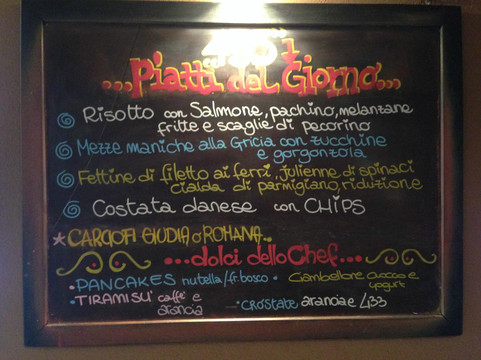 ...Piatti del Giorno...
Risotto con Salmone, pachino, melanzane
fritte e scaglie di pecorino
Mezze maniche alla Gricia con zucchine
e gorgonzola
Fettine di filetto ai ferri, julienne di spinaci
cialda di parmigiano, riduzione
Costata danese con CHIPS
CARCIOFI GIUDIA o ROMANA...
...dolci dello Chef...
PANCAKES nutella/fr. bosco
Ciambellone cocco e
yogurt
TIRAMISU' caffè e
arancia
CROSTATE arancia e